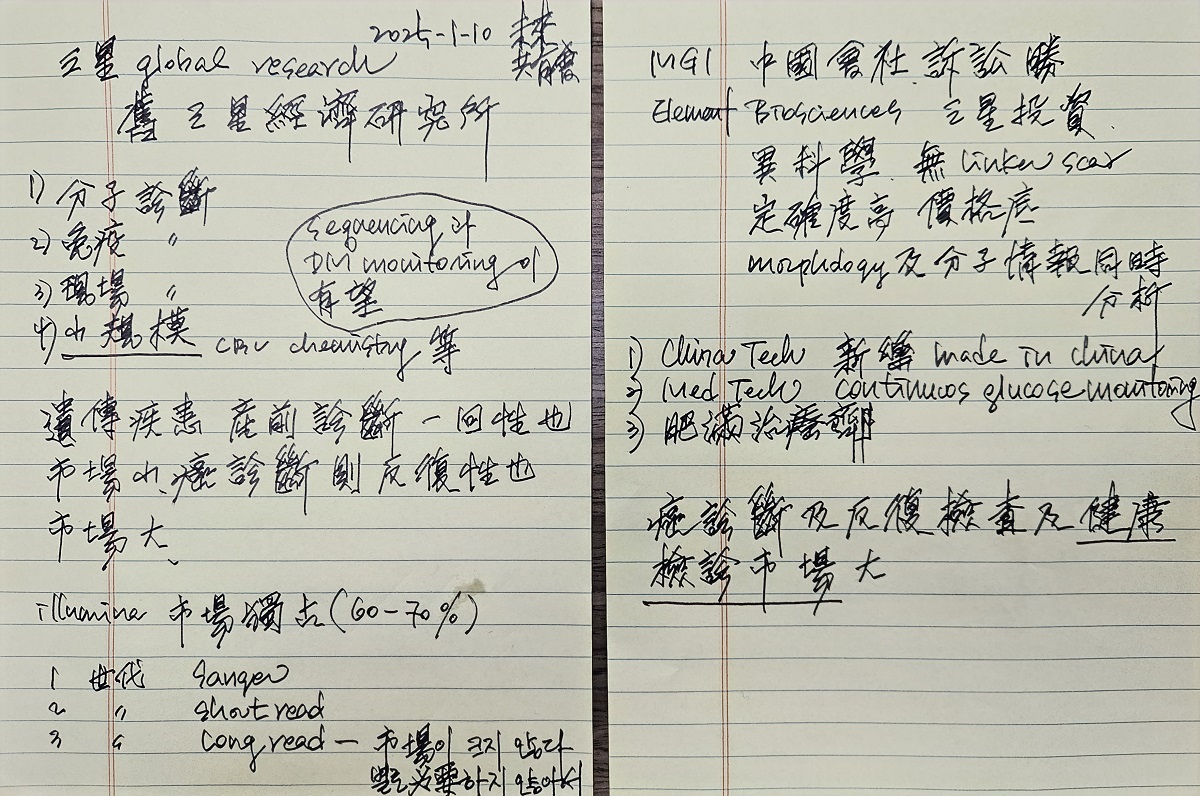 2025-1-10 未來
共有會
三星 global research
舊 三星經濟研究所
1) 分子診斷
2) 免疫 〃
3) 現場 〃
4) 小規模 CBC chemistry 等
sequencing과
DM monitoring이
有望
遺傳疾患 産前診斷 一回性也
市場小. 癌診斷則 反復性也
市場大.
illumina 市場獨占(60-70%)
1 世代 Sanger
2 〃 short read
3 〃 long read — 市場이 크지 않다
別로 必要하지 않아서
MGI 中國會社 訴訟勝
Element Biosciences 三星投資.
異科學. 無 linker scar
定確度高 價格底
morphology及分子情報同時
分析
1) China Tech 新藥 made in china
2) Med Tech continuos glucose monitoring
3) 肥滿治療劑
癌診斷及反復檢査及健康
檢診市場大